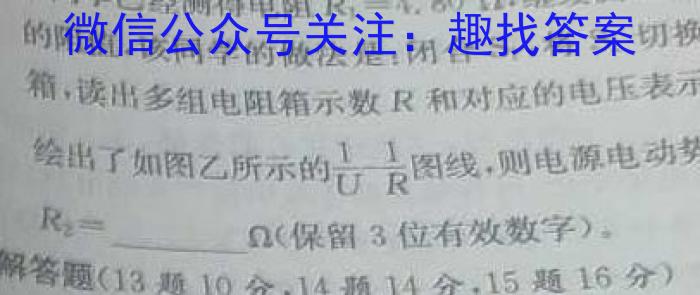 已经测得电阻 R₁=4.80 Ω
微信公众号关注：趣找答案
的 该同学的做法是：闭合 切换
箱，读出多组电阻箱示数 R 和对应的电压表示
绘出了如图乙所示的 1/U - 1/R 图线，则电源电动势
R₂=______Ω(保留 3 位有效数字)。
解答题(13 题 10 分，14 题 14 分，15 题 16 分)